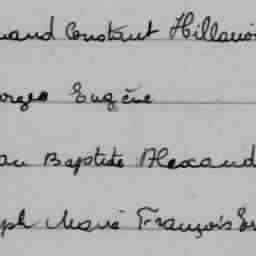 mand Constant Hillario
orges Eugène
an Baptiste Alexand
ph Marie François Eu